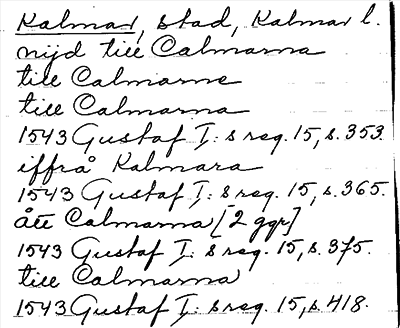 Kalmar, stad, Kalmar l.
nijd till Calmarna
till Calmarne
till Calmarna
1543 Gustaf I: s reg. 15, s. 353
iffrå Kalmara
1543 Gustaf I: s reg. 15, s. 365.
ått Calmarna [2 ggr]
1543 Gustaf I: s reg. 15, s. 375.
till Calmarna
1543 Gustaf I: s reg. 15, s. 418.